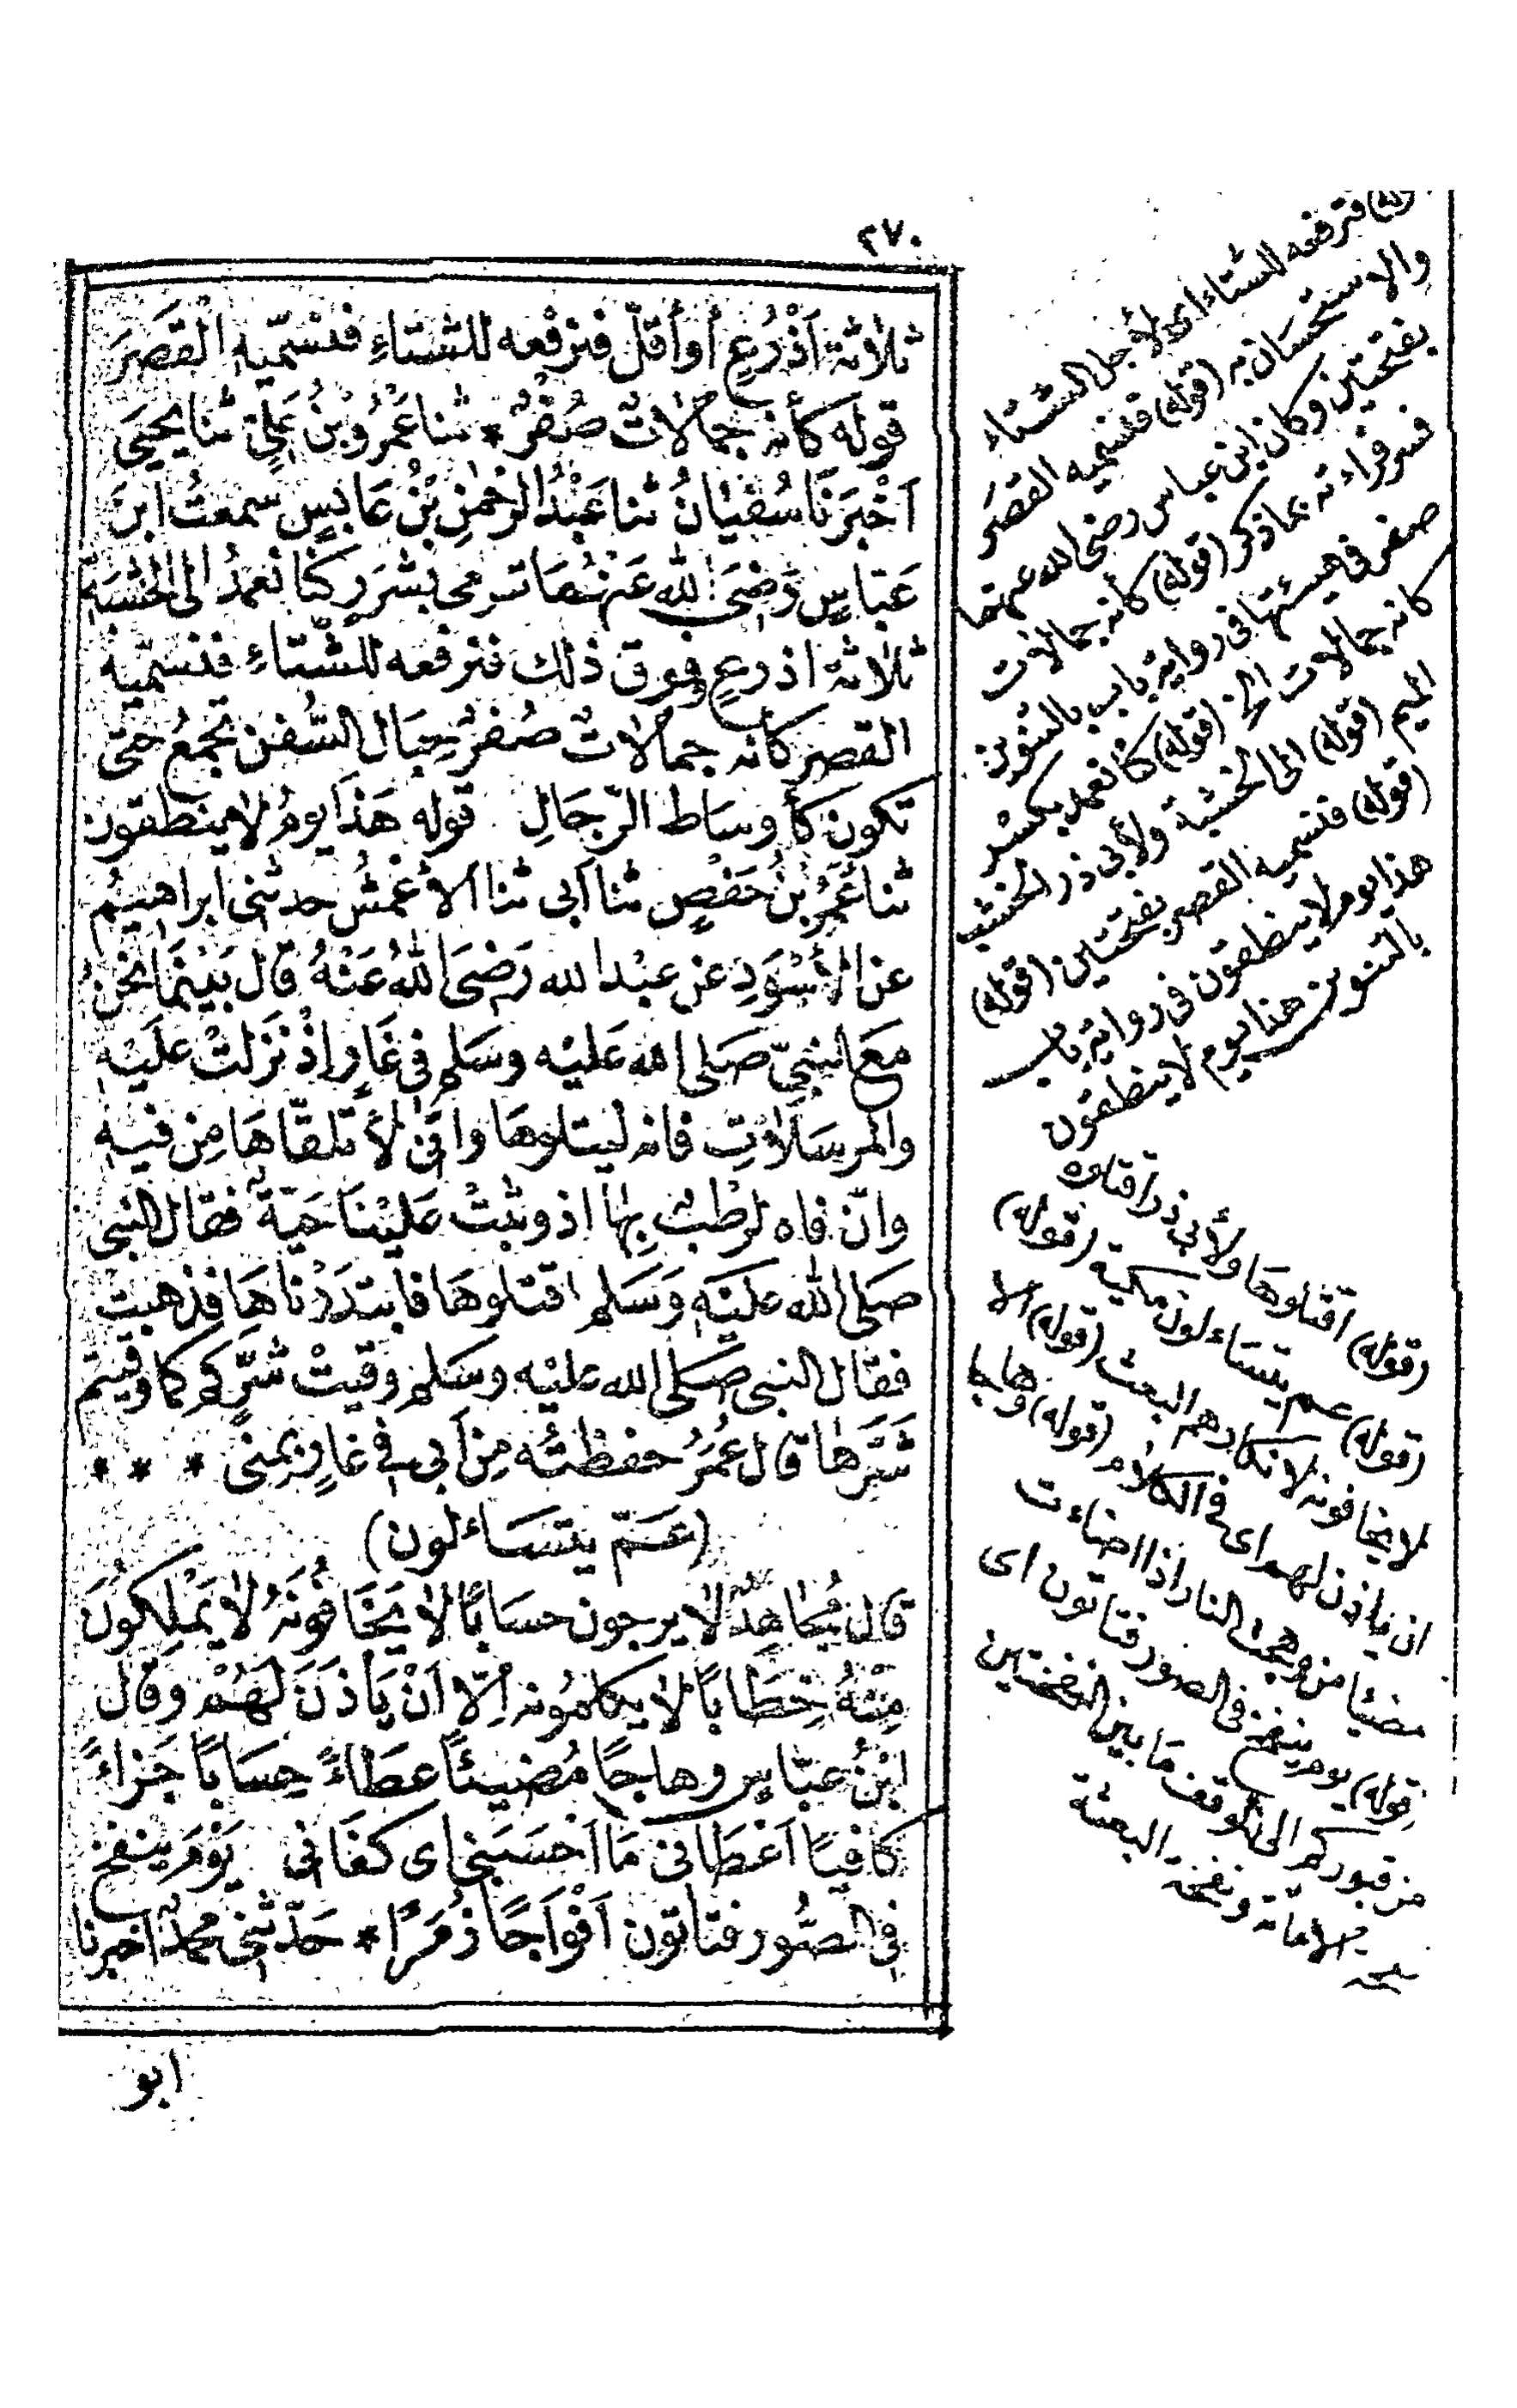 ٢٧٠
ثلاثة اَذْرُعٍ أو أقلّ فنرفعه للشتاءِ فنسمّيه القَصَرَ
قوله كأنه جمالاتٌ صُفْرٌ * ثنا عَمْرُو بْنُ عَلِيٍّ ثنا يحيَى
اَخْبَرَنَا سُفْيٰانُ ثنا عَبْدُ الرَّحْمٰنِ بْنُ عَابِسٍ سمعتُ ابنَ
عَبّاسٍ رَضِىَ اللهُ عَنْهُمَا ترمى بشَرَرٍ كنّا نعمدُ الى الخشبَةِ
ثلاثة اذرعٍ وفوق ذلك فنرفعه للشّتاءِ فنسمّيه
القصَر كانه جمالاتٌ صُفرٌ حِبَال السُّفن تجمعُ حتى
تكون كأوساط الرّجَالِ قوله هَذا يومُ لا ينطقون
ثنا عُمَرُ بنُ حَفْصٍ ثنا اَبى ثنا اَلاعْمَشُ حدثنى ابراهيمُ
عن الأسْوَدِ عن عبْد الله رَضِىَ اللهُ عَنْهُ قال بَيْنَمَا نحْنُ
مَعَ النبيّ صَلى الله عَليْه وسَلم فى غَارٍ اِذْ نَزَلتْ عليْه
والمرسَلاٰتِ فانه ليتلوهَا وانّى لأتلقّاهَا مِن فيه
وانّ فاه لرطْبٌ بِهٰا اذ وثبَتْ علَيْنَا حَيّةٌ فقال النبى
صَلى الله عليْهِ وَسَلم اقتلوهَا فابتدَرْنَاهَا فذهبَتْ
فقال النبى صَلى الله عليْه وسَلم وقيَتْ شَرَّكم كما وقيتم
شَرَّهَا قال عُمَرُ حفظتُه مِن اَبى فى غارٍ بِمنى * * *
(عَمّ يتسَاءلون)
قال مُجٰاهِدٌ لا يرجون حسَابًا لا يَخَافُونَهُ لا يَمْلِكُونَ
مِنْهُ خِطَابًا لا يكلمُونه اِلّا اَنْ يَاذَنَ لَهُمْ وَقال
ابْنُ عبّاسٍ وهاجًا مُضيئًا عطَاءً حِسَابًا جَزاءً
كافيًا اَعْطَانى مَا اَحْسَبَنِى اى كفَانى يَوْمَ ينفخ
فى الصُّور فتاتون اَفْوَاجًا زُمَرًا * حَدّثنى محمدٌ اخبرنا
ابو
فنرفعه للشتاء اى لأجل الشتاء
والاستحسان به (قوله) فنسميه القصَر
بفتحتين وكان ابن عباس رضى الله عنهما
فسر قراءته بما ذكر (قوله) كأنه جمالات
صفر فى هيئتها فى رواية باب بالتنوين
كانه جمالات الخ (قوله) كنا نعمد بكسْر
الميم (قوله) الى الخشبة ولأبى ذر الخشب
(قوله) فنسميه القصر بفتحتين (قوله)
هذا يوم لا ينطقون فى رواية باب
بالتنوين هذا يوم لا ينطقون
(قوله) اقتلوهَا ولأبى ذر اقتلوه
(قوله) عم يتسَاءلون مكية (قوله)
لا يخافونه لانكارهم البعث (قوله) الا
ان ياذن لهم اى فى الكلام (قوله) وهاجا
مضيئا من وهجت النار اذا اضاءت
(قوله) يوم ينفخ فى الصور فتاتون اى
من قبوركم الى الموقف مَا بين النفختين
نفخة الاماتة ونفخة البعثة